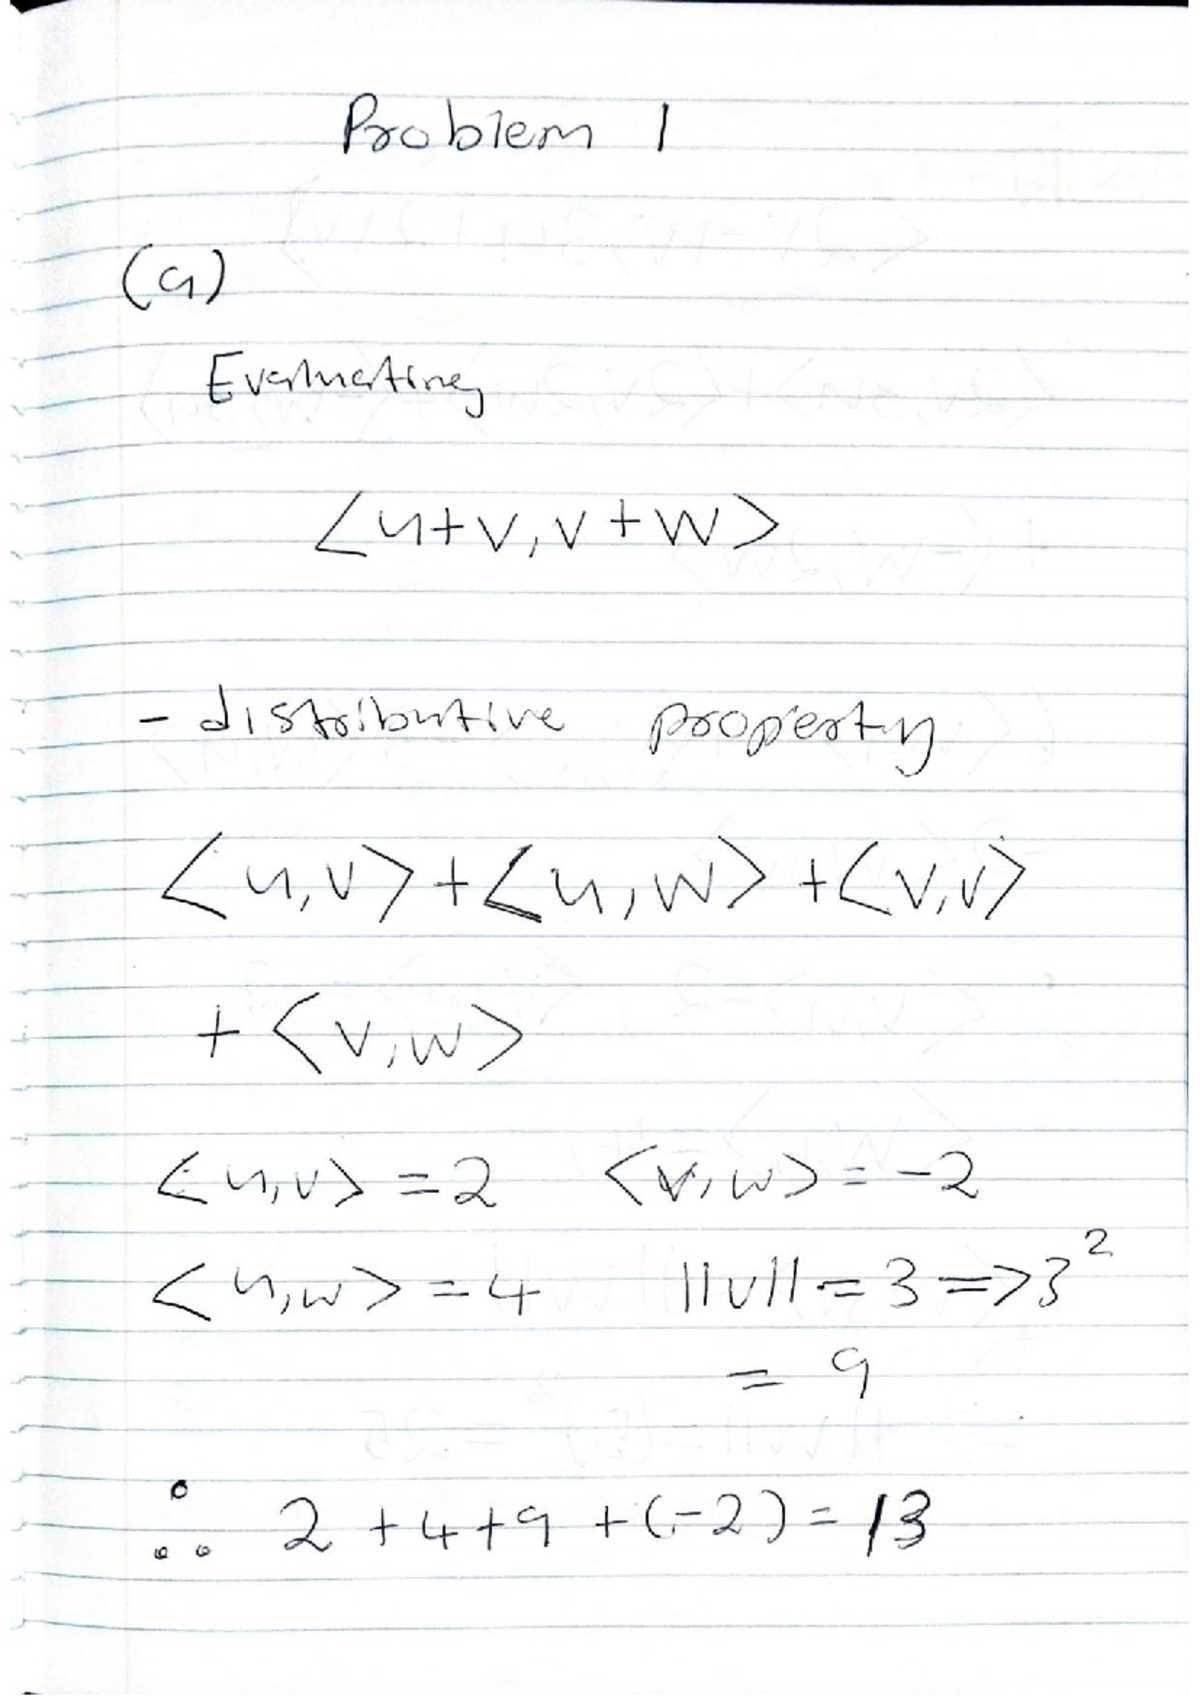 Problem 1
(a)
Evaluating
<u+v, v+w>
- distributive property
<u,v> + <u,w> + <v,v>
+ <v,w>
<u,v> = 2 <v,w> = -2
<u,w> = 4 ||v|| = 3 => 3²
= 9
∴ 2 + 4 + 9 + (-2) = 13